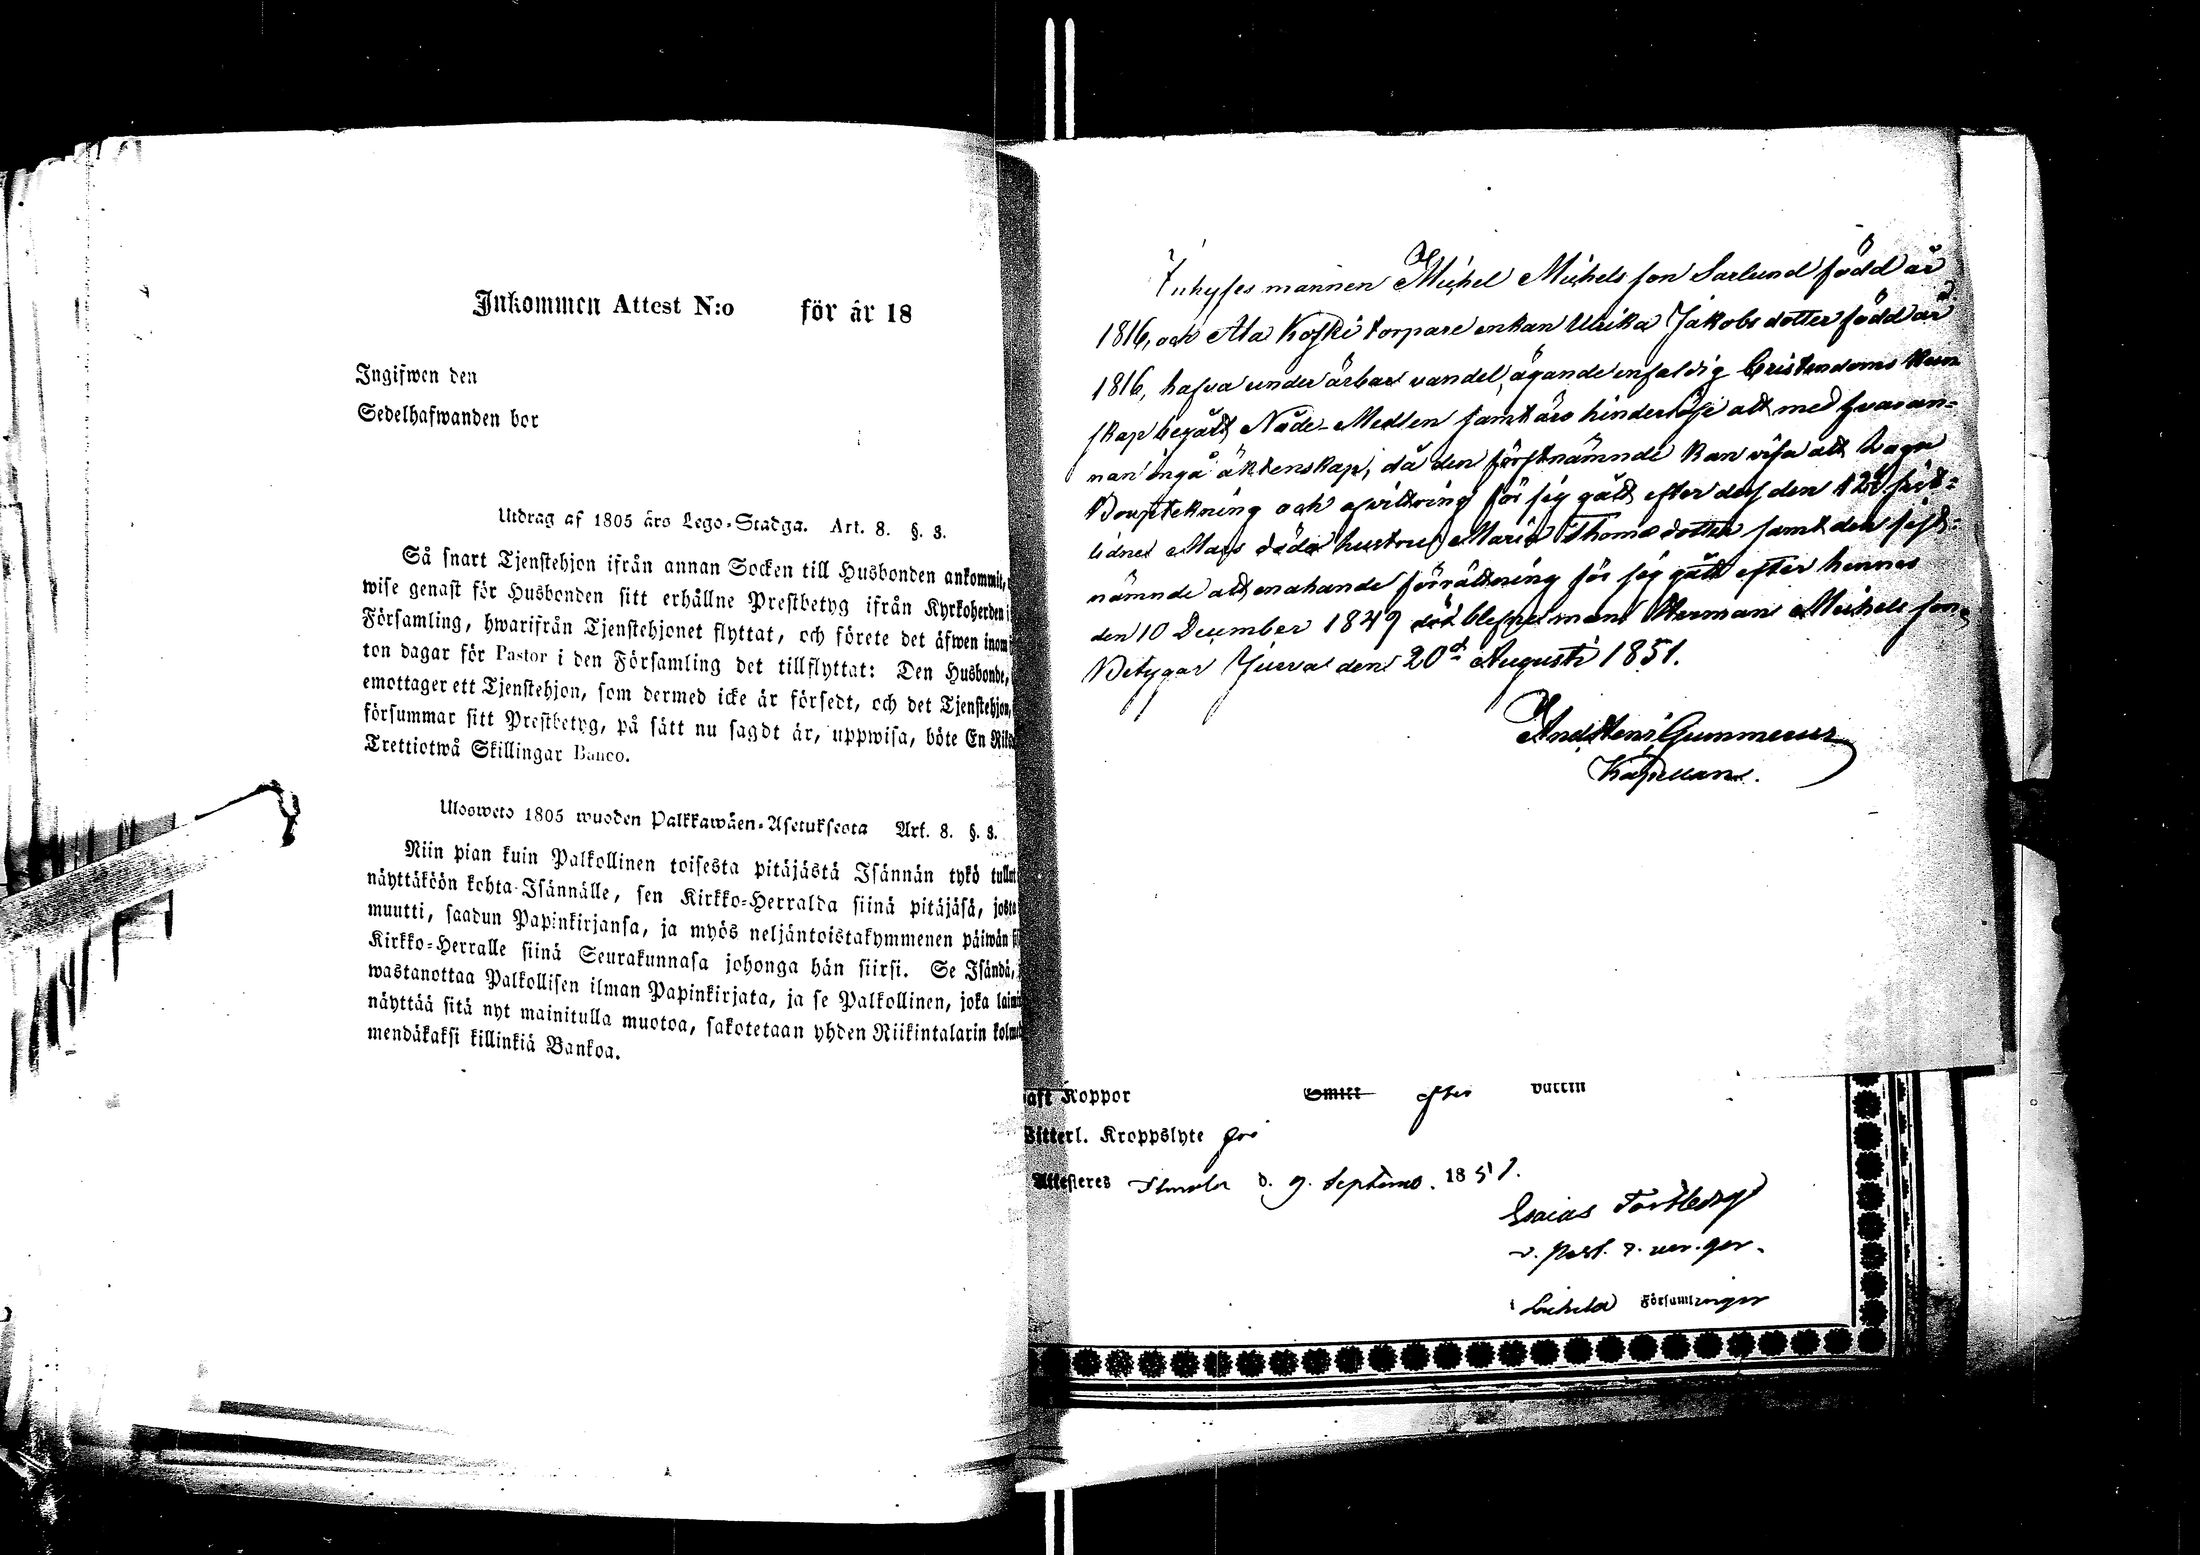 Inkommen Attest N:o för år 18
Ingifwen den
Sedelhafwanden bor
Utdrag af 1805 års Lego-Stadga. Art. 8. §. 3.
Så snart Tjenstehjon ifrån annan Socken till Husbonden ankommit,
wise genast för Husbonden sitt erhållne Prestbetyg ifrån Kyrkoherden i
Församling, hwarifrån Tjenstehjonet flyttat, och förete det äfwen inom
ton dagar för Pastor i den Församling det tillflyttat: Den Husbonde,
emottager ett Tjenstehjon, som dermed icke är försedt, och det Tjenstehjon,
försummar sitt Prestbetyg, på sätt nu sagdt är, uppwisa, böte En Riks
Trettiotwå Skillingar Banco.
Ulosweto 1805 wuoden Palkkawäen-Asetuksesta Art. 8. §. 3.
Niin pian kuin Palkollinen toisesta pitäjästä Isännän tykö tullut
näyttäköön kohta Isännälle, sen Kirkko-Herralda siinä pitäjäsä, josta
muutti, saadun Papinkirjansa, ja myös neljäntoistakymmenen päiwän si
Kirkko-Herralle siinä Seurakunnasa johonga hän siirsi. Se Isändä,
wastanottaa Palkollisen ilman Papinkirjata, ja se Palkollinen, joka laimi
näyttää sitä nyt mainitulla muotoa, sakotetaan yhden Riikintalarin kolme
mendäkaksi killinkiä Bankoa.
Inhyses mannen Michel Michels son Sarlund född år
1816, och Ala Koski torpare enkan Ulrika Jakobs dotter född år
1816, hafva under ärbar vandel, ägande enfaldig Cristendoms kun
skap begått Nåde-Medlen samt äro hinderlöse att med hvaran-
nan ingå äktenskap, då den förstnämnde kan visa att laga
Bouptekning och afvittring för sig gått efter dess den 12 sist-
lidne Mars döda hustru Maria Thomædotter samt den sist-
nämnde att enahande förrättning för sig gått efter hennes
den 10 December 1849 död blefne man Herman Michels son,
Betygar Jurva den 20d Augusti 1851.
And. Hen. Gummerus
Kapellan.
aft Koppor Smitt efter vattin
Witterl. Kroppslyte fri
Attesteres Ilmola d. 9. Septemb. 1851.
Esaias Fortberg
v. past.
i Församlingar